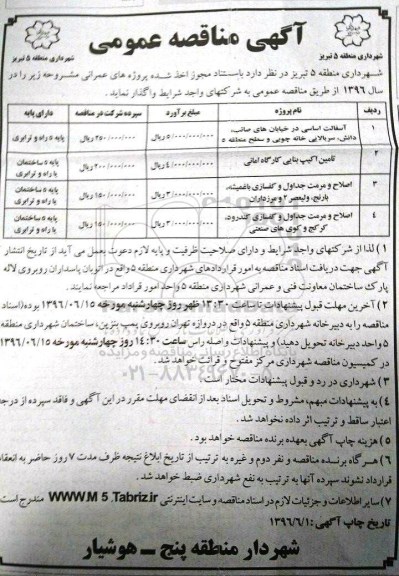 آگهی مناقصه عمومی
شهرداری منطقه ۵ تبریز
شهرداری منطقه ۵ تبریز
شهرداری منطقه ۵ تبریز در نظر دارد باستناد مجوز اخذ شده پروژه های عمرانی مشروحه زیر را در
سال ۱۳۹۶ از طریق مناقصه عمومی به شرکتهای واجد شرایط واگذار نماید.
ردیف نام پروژه مبلغ برآورد سپرده شرکت در مناقصه دارای پایه
۱ آسفالت اساسی در خیابان های صائب، ۵/۰۰۰/۰۰۰/۰۰۰ ریال ۲۵۰/۰۰۰/۰۰۰ ریال پایه ۵ راه و ترابری
دانش، سربالایی خانه چوبی و سطح منطقه ۵
۲ تامین اکیپ بنایی کارگاه امانی ۴/۰۰۰/۰۰۰/۰۰۰ ریال ۲۰۰/۰۰۰/۰۰۰ ریال پایه ۵ ساختمان
یا راه و ترابری
۳ اصلاح و مرمت جداول و کفسازی باغمیشه، ۳/۰۰۰/۰۰۰/۰۰۰ ریال ۱۵۰/۰۰۰/۰۰۰ ریال پایه ۵ ساختمان
بارنج، ولیعصر ۲ و مرزداران یا راه و ترابری
۴ اصلاح و مرمت جداول و کفسازی کندرود، ۳/۰۰۰/۰۰۰/۰۰۰ ریال ۱۵۰/۰۰۰/۰۰۰ ریال پایه ۵ ساختمان
کرکج و کوی های صنعتی یا راه و ترابری
۱) لذا از شرکتهای واجد شرایط و دارای صلاحیت ظرفیت و پایه لازم دعوت بعمل می آید از تاریخ انتشار
آگهی جهت دریافت اسناد مناقصه به امور قراردادهای شهرداری منطقه ۵ واقع در اتوبان پاسداران روبروی لاله
پارک ساختمان معاونت فنی و عمرانی شهرداری منطقه ۵ واحد امور قراداد مراجعه نمایند.
۲) آخرین مهلت قبول پیشنهادات تا ساعت ۱۳:۳۰ ظهر روز چهارشنبه مورخه ۱۳۹۶/۰۶/۱۵ بوده (اسناد
مناقصه را به دبیرخانه شهرداری منطقه ۵ واقع در دروازه تهران روبروی پمپ بنزین، ساختمان شهرداری منطقه
۵ واحد دبیرخانه تحویل دهید) و پیشنهادات واصله راس ساعت ۱۴:۳۰ روز چهارشنبه مورخه ۱۳۹۶/۰۶/۱۵
در کمیسیون مناقصه شهرداری مرکز مفتوح و قرائت خواهد شد.
۳) شهرداری در رد و قبول پیشنهادات مختار است.
۴) به پیشنهادات مبهم، مشروط و تحویل اسناد بعد از انقضای مهلت مقرر در این آگهی و فاقد سپرده از درجه
اعتبار ساقط و ترتیب اثر داده نخواهد شد.
۵) هزینه چاپ آگهی بعهده برنده مناقصه خواهد بود.
۶) هرگاه برنده مناقصه و نفر دوم و غیره به ترتیب از تاریخ ابلاغ نتیجه ظرف مدت ۷ روز حاضر به انعقاد
قرارداد نشوند سپرده آنها به ترتیب به نفع شهرداری ضبط خواهد شد.
۷) سایر اطلاعات و جزئیات لازم در اسناد مناقصه و سایت اینترنتی WWW.M 5.Tabriz.ir مندرج است.
تاریخ چاپ آگهی: ۱۳۹۶/۶/۱
شهردار منطقه پنج ــ هوشیار
پایگاه اطلاع رسانی مناقصه و مزایده
۰۲۱-۸۸۳۴۹۶۷۰-۸